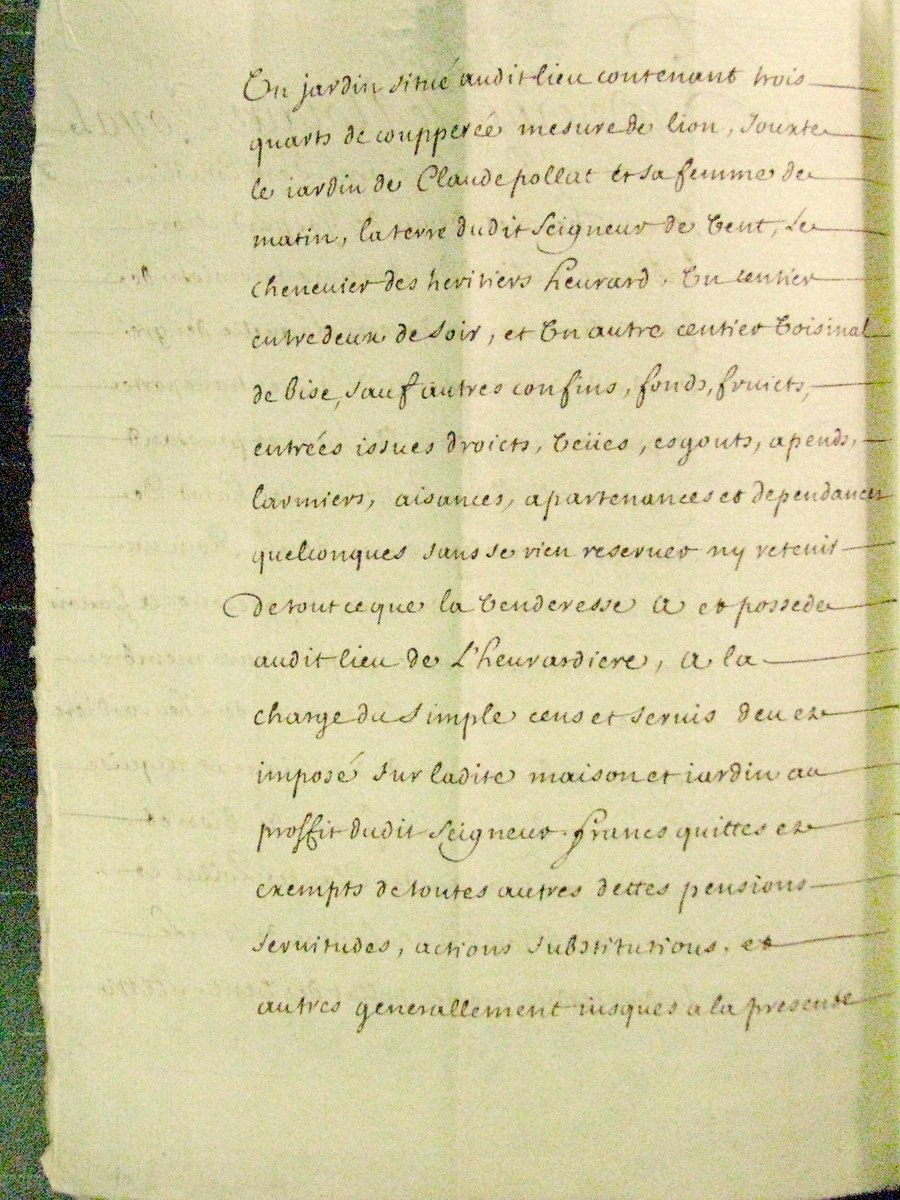 Un jardin situé audit lieu contenant trois
quarts de coupperée mesure de lion, Jouxte
le iardin de Claude pollat et sa femme de
matin, la terre dudit Seigneur de Vent, le
cheneuier des heritiers heurard, Un centier
entredeux de soir, et Un autre centier Voisinal
de bise, sauf autres confins, fonds, fruicts,
entrées issues droicts, Veües, esgouts, apends,
larmiers, aisances, apartenances et dependances
quelconques sans se rien reseruer ny retenir
De tout ce que la Venderesse a et possede
audit lieu de L'heurardiere, a la
charge du simple cens et seruis deu et
imposé sur ladite maison et iardin au
proffit dudit Seigneur. francs quittes et
exempts de toutes autres dettes pensions
seruitudes, actions substitutions, et
autres generallement iusques a la presente